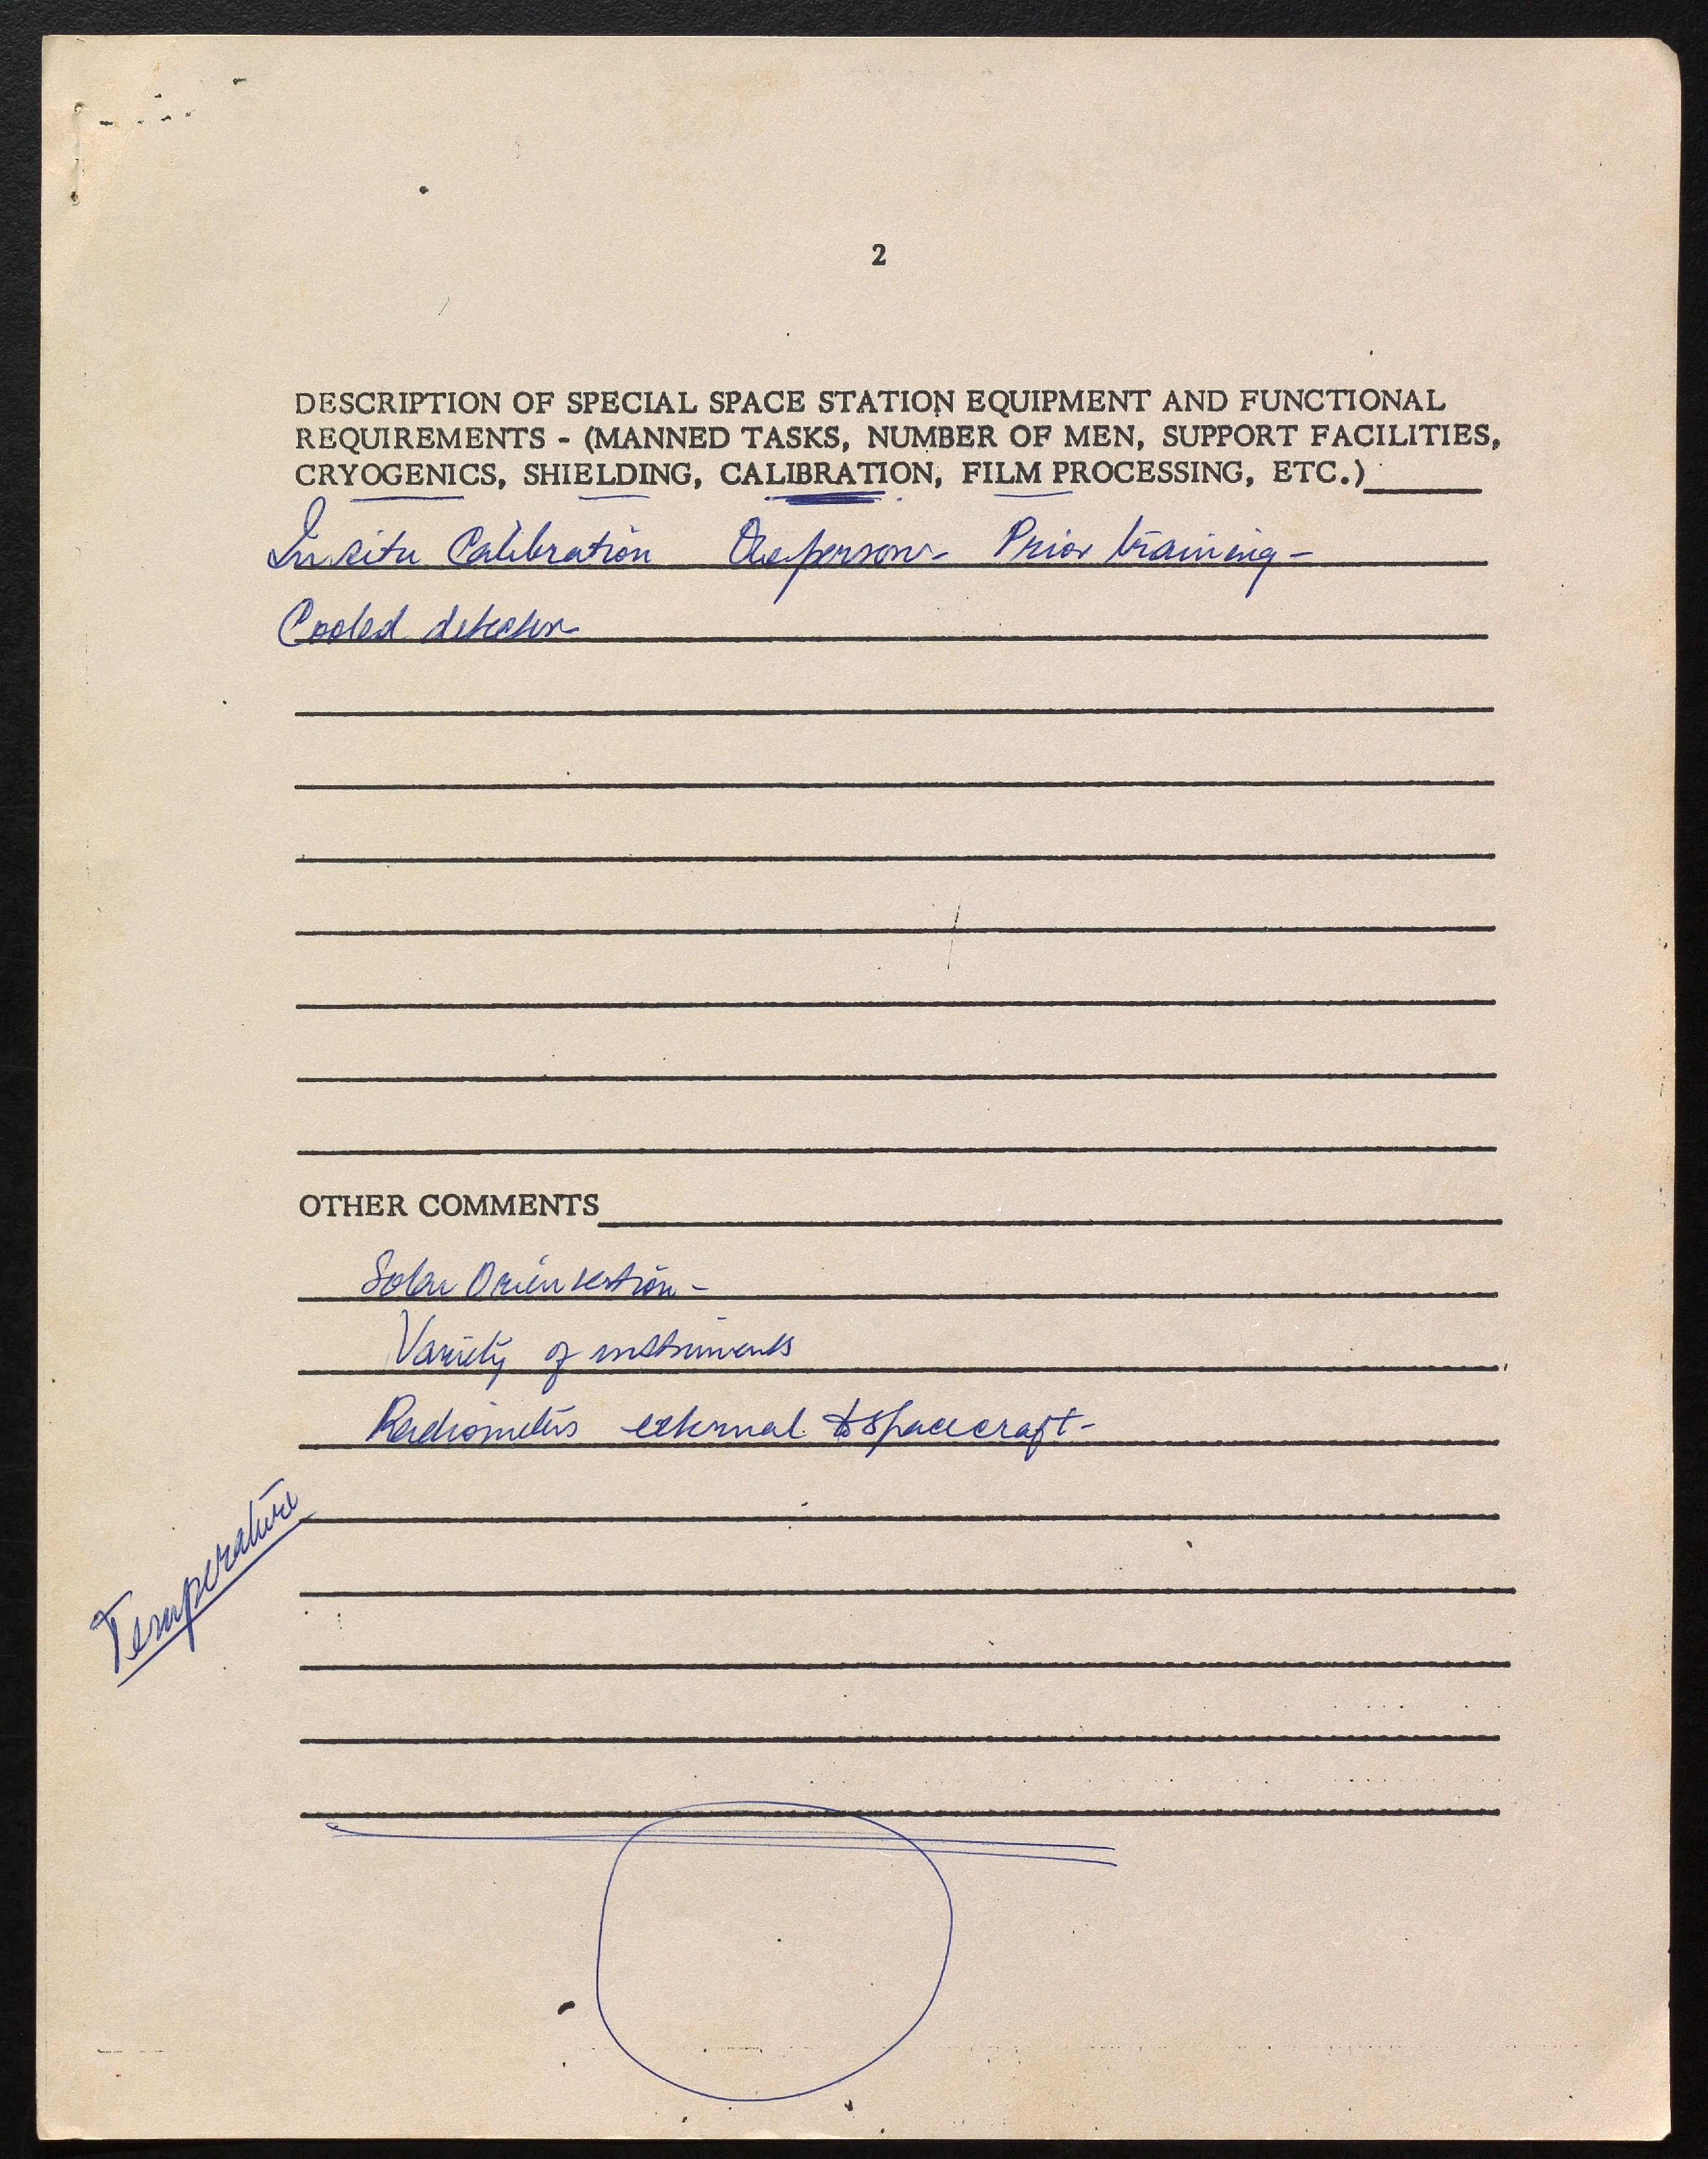 2
DESCRIPTION OF SPECIAL SPACE STATION EQUIPMENT AND FUNCTIONAL
REQUIREMENTS - (MANNED TASKS, NUMBER OF MEN, SUPPORT FACILITIES,
CRYOGENICS, SHIELDING, CALIBRATION, FILM PROCESSING, ETC.)
In situ Calibration One person - Prior training -
Cooled detector
OTHER COMMENTS
Solar Orientation -
Variety of instruments
Radiometers external to spacecraft -
Temperature